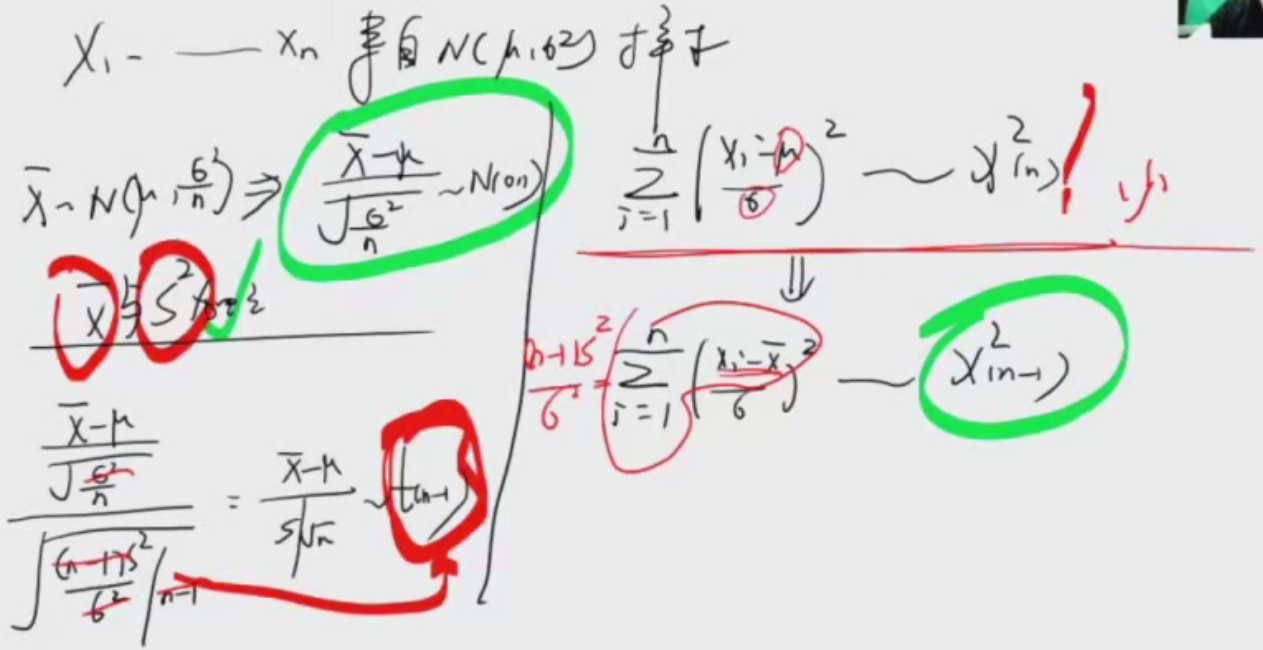 X₁ - —— Xₙ 来自 N(μ, σ²)
X̄ ~ N(μ, σ²/n) ⇒ (X̄-μ)/√(σ²/n) ~ N(0,1)
X̄ 与 S²
(X̄-μ)/√(σ²/n) / √((n-1)S²/σ² / n-1) = (X̄-μ)/(S/√n) ~ t(n-1)
∑ᵢ₌₁ⁿ ((Xᵢ-μ)/σ)² ~ χ²(n) !
⇓
(n-1)S²/σ² = ∑ᵢ₌₁ⁿ ((Xᵢ-X̄)/σ)² ~ χ²(n-1)